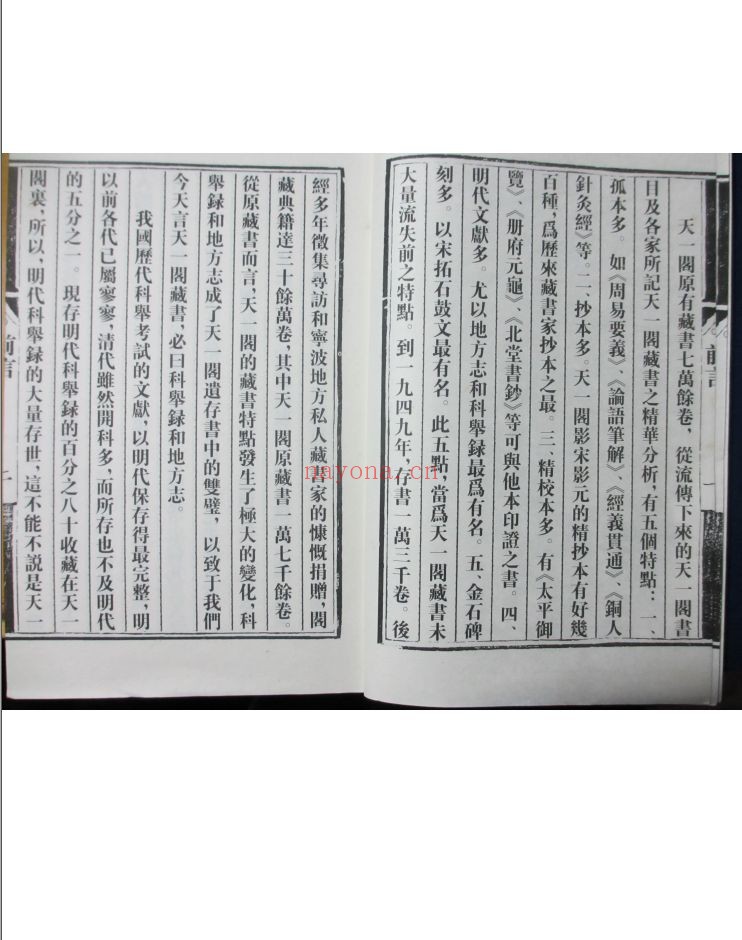 天一閣原有藏書七萬餘卷，從流傳下來的天一閣書
目及各家所記天一閣藏書之精華分析，有五個特點：一、
孤本多。如《周易要義》、《論語筆解》、《經義貫通》、《銅人
針灸經》等。二、抄本多。天一閣影宋影元的精抄本有好幾
百種，爲歷來藏書家抄本之最。三、精校本多。有《太平御
覽》、《册府元龜》、《北堂書鈔》等可與他本印證之書。四、
明代文獻多。尤以地方志和科舉録最爲有名。五、金石碑
刻多。以宋拓石鼓文最有名。此五點，當爲天一閣藏書未
大量流失前之特點。到一九四九年，存書一萬三千卷。後
前言
一
經多年徵集尋訪和寧波地方私人藏書家的慷慨捐贈，閣
藏典籍達三十餘萬卷，其中天一閣原藏書一萬七千餘卷。
從原藏書而言，天一閣的藏書特點發生了極大的變化，科
舉録和地方志成了天一閣遺存書中的雙璧，以致于我們
今天言天一閣藏書，必曰科舉録和地方志。
我國歷代科舉考試的文獻，以明代保存得最完整，明
以前各代已屬寥寥，清代雖然開科多，而所存也不及明代
的五分之一。現存明代科舉録的百分之八十收藏在天一
閣裏，所以，明代科舉録的大量存世，這不能不説是天一
前言
nayona.cn